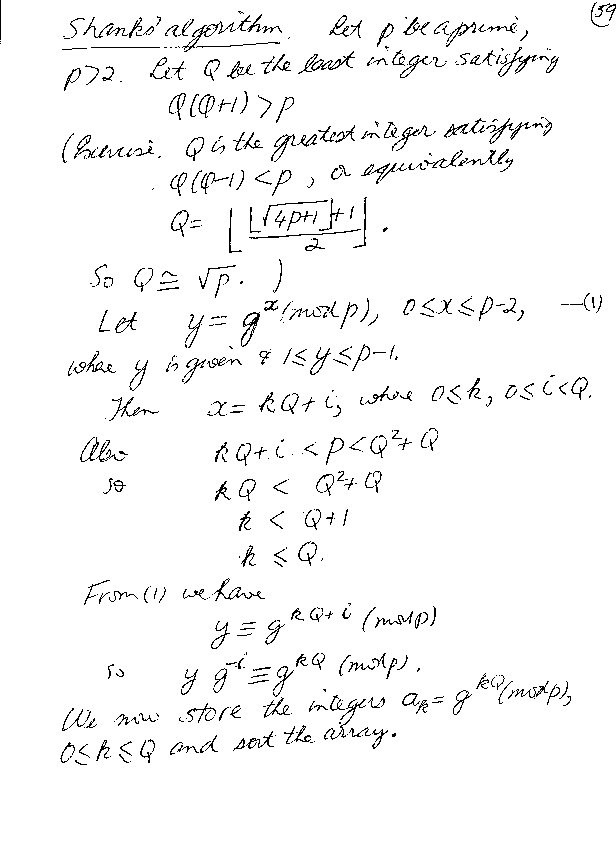 59
Shanks' algorithm. Let p be a prime,
p>2. Let Q be the least integer satisfying
Q(Q+1)>p
(Exercise. Q is the greatest integer satisfying
Q(Q-1)<p, or equivalently
Q= ⌊(⌊√(4p+1)⌋+1)/2⌋.
So Q≅√p. )
Let y = g^x (mod p), 0≤x≤p-2, —(1)
where y is given & 1≤y≤p-1.
Then x= kQ+i, where 0≤k, 0≤i<Q.
Also kQ+i<p<Q²+Q
so kQ < Q²+Q
k < Q+1
k ≤ Q.
From (1) we have
y ≡ g^(kQ+i) (mod p)
so y g^(-i) ≡ g^(kQ) (mod p).
We now store the integers a_k = g^(kQ) (mod p),
0≤k≤Q and sort the array.